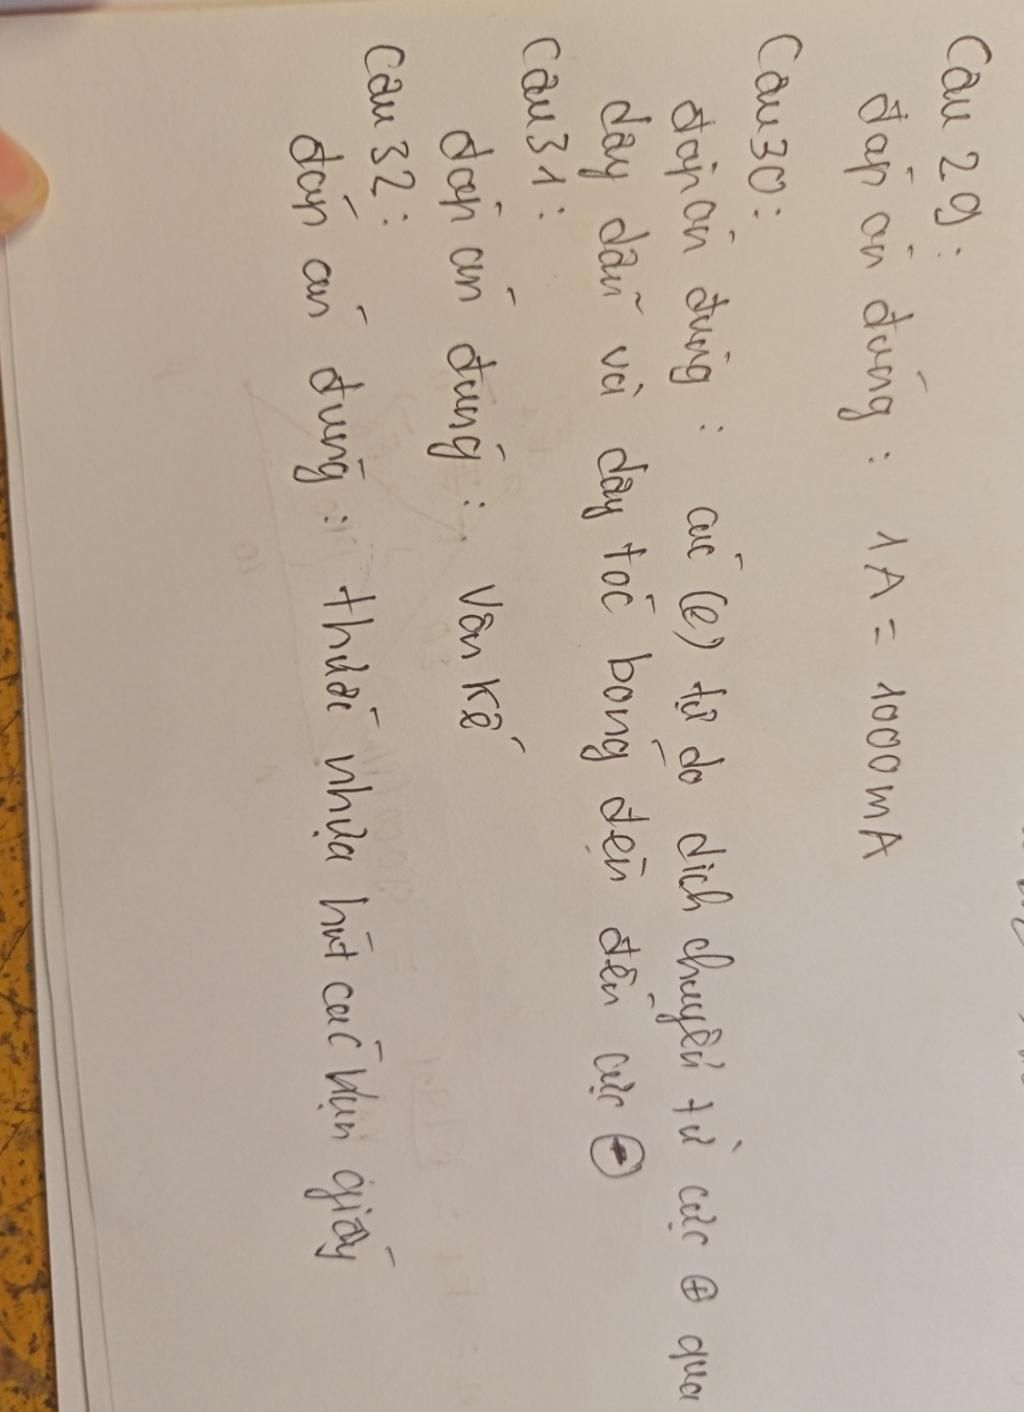 Câu 29:
đáp án đúng: 1A = 1000mA
Câu 30:
đáp án đúng: các (e) tự do dịch chuyển từ cực ⊕ qua
dây dẫn và dây tóc bóng đèn đến cực ⊖
Câu 31:
đáp án đúng: Vôn kế
Câu 32:
đáp án đúng: thước nhựa hút các vụn giấy